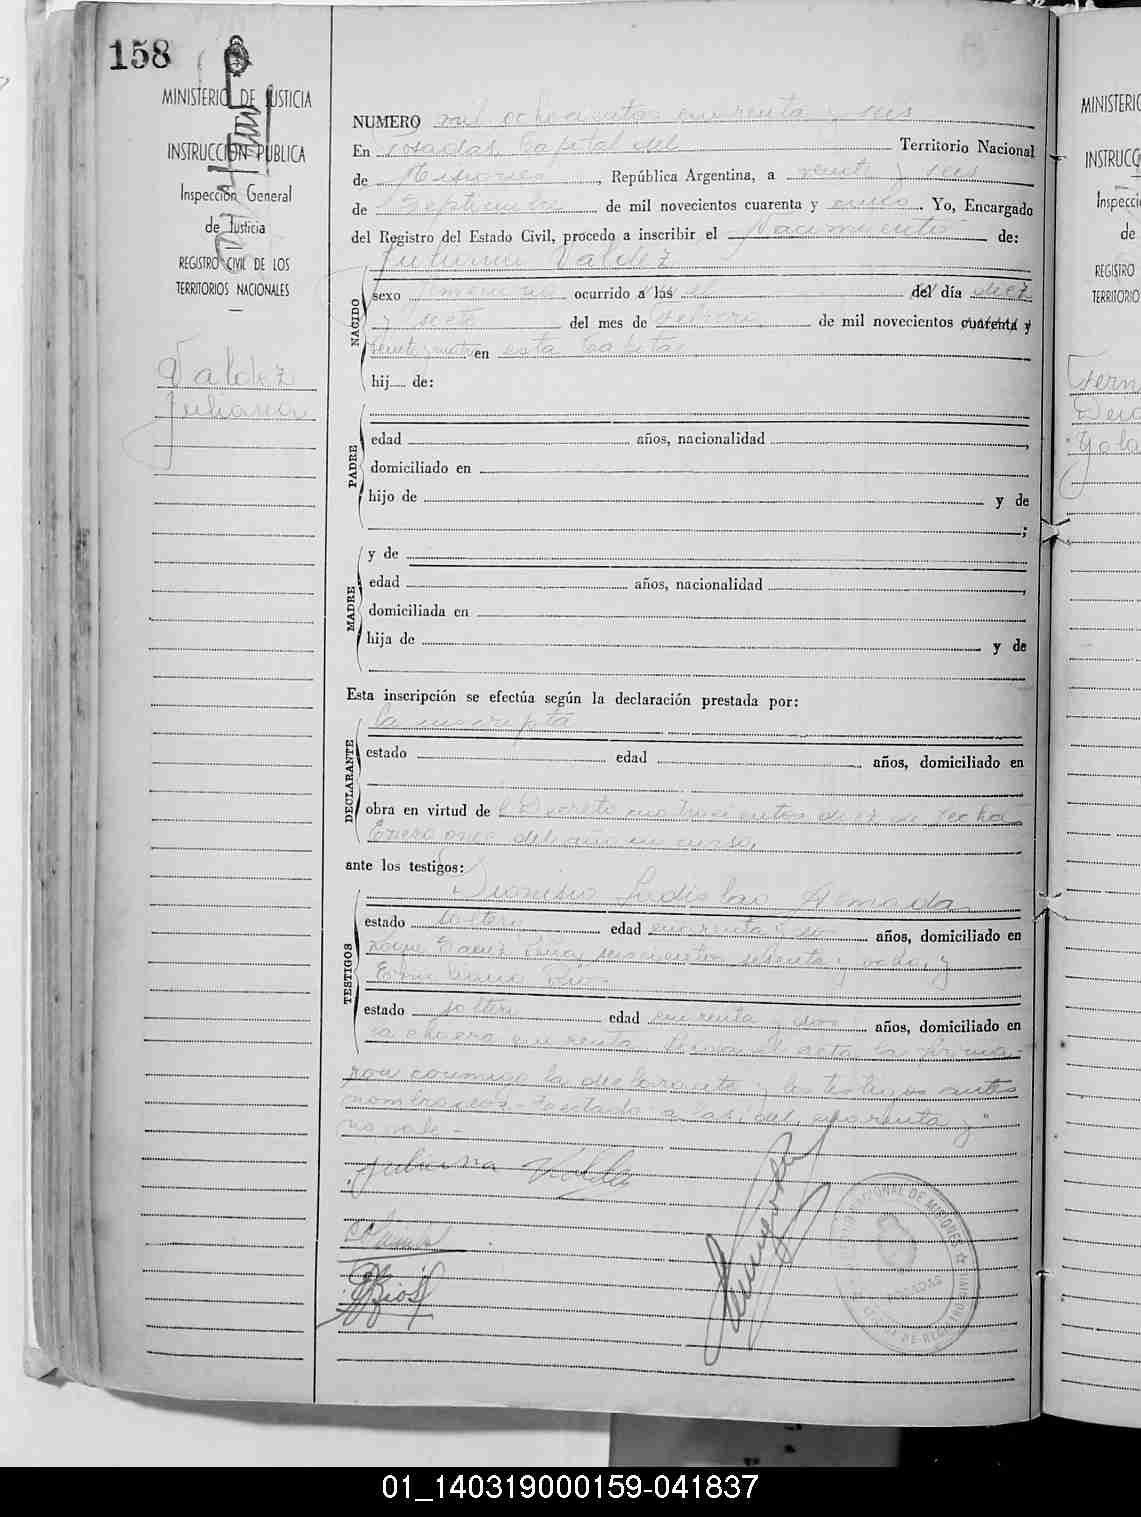 158
MINISTERIO DE JUSTICIA
INSTRUCCIÓN PÚBLICA
Inspección General
de Justicia
REGISTRO CIVIL DE LOS
TERRITORIOS NACIONALES
Valdez
Juliana
NUMERO mil ochocientos cuarenta y seis
En Posadas, Capital del Territorio Nacional
de Misiones, República Argentina, a veinte y seis
de Septiembre de mil novecientos cuarenta y cinco. Yo, Encargado
del Registro del Estado Civil, procedo a inscribir el Nacimiento de:
Juliana Valdez
sexo femenino ocurrido a las del día diez
y siete del mes de Febrero de mil novecientos cuarenta y
veinte y cuatro en esta Capital
NACIDO
hij de:
PADRE
edad años, nacionalidad
domiciliado en
hijo de y de
;
MADRE
y de
edad años, nacionalidad
domiciliada en
hija de y de
Esta inscripción se efectúa según la declaración prestada por:
la inscripta
DECLARANTE
estado edad años, domiciliado en
obra en virtud de Decreto cuatrocientos diez de fecha
Enero once del año en curso,
ante los testigos:
Dionisio Ladislao Almada
TESTIGOS
estado soltero edad cuarenta y años, domiciliado en
Roque Saenz Peña, seiscientos sesenta y ocho, y
estado soltero edad cuarenta y dos años, domiciliado en
cuarenta. Leída el acta la firma-
ron conmigo la declarante y los testigos antes
nombrados.- Testado: a las, del, cuarenta y
no vale.-
Juliana Valdez
Rios
TERRITORIO NACIONAL DE MISIONES
POSADAS
MINISTERIO
INSTRUCC
Inspecci
de
REGISTRO
TERRITORIO
01_140319000159-041837